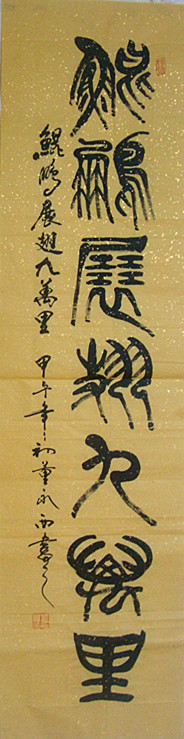 鯤鵬展翅九萬里
鯤鵬展翅九萬里 甲午年初董永西書